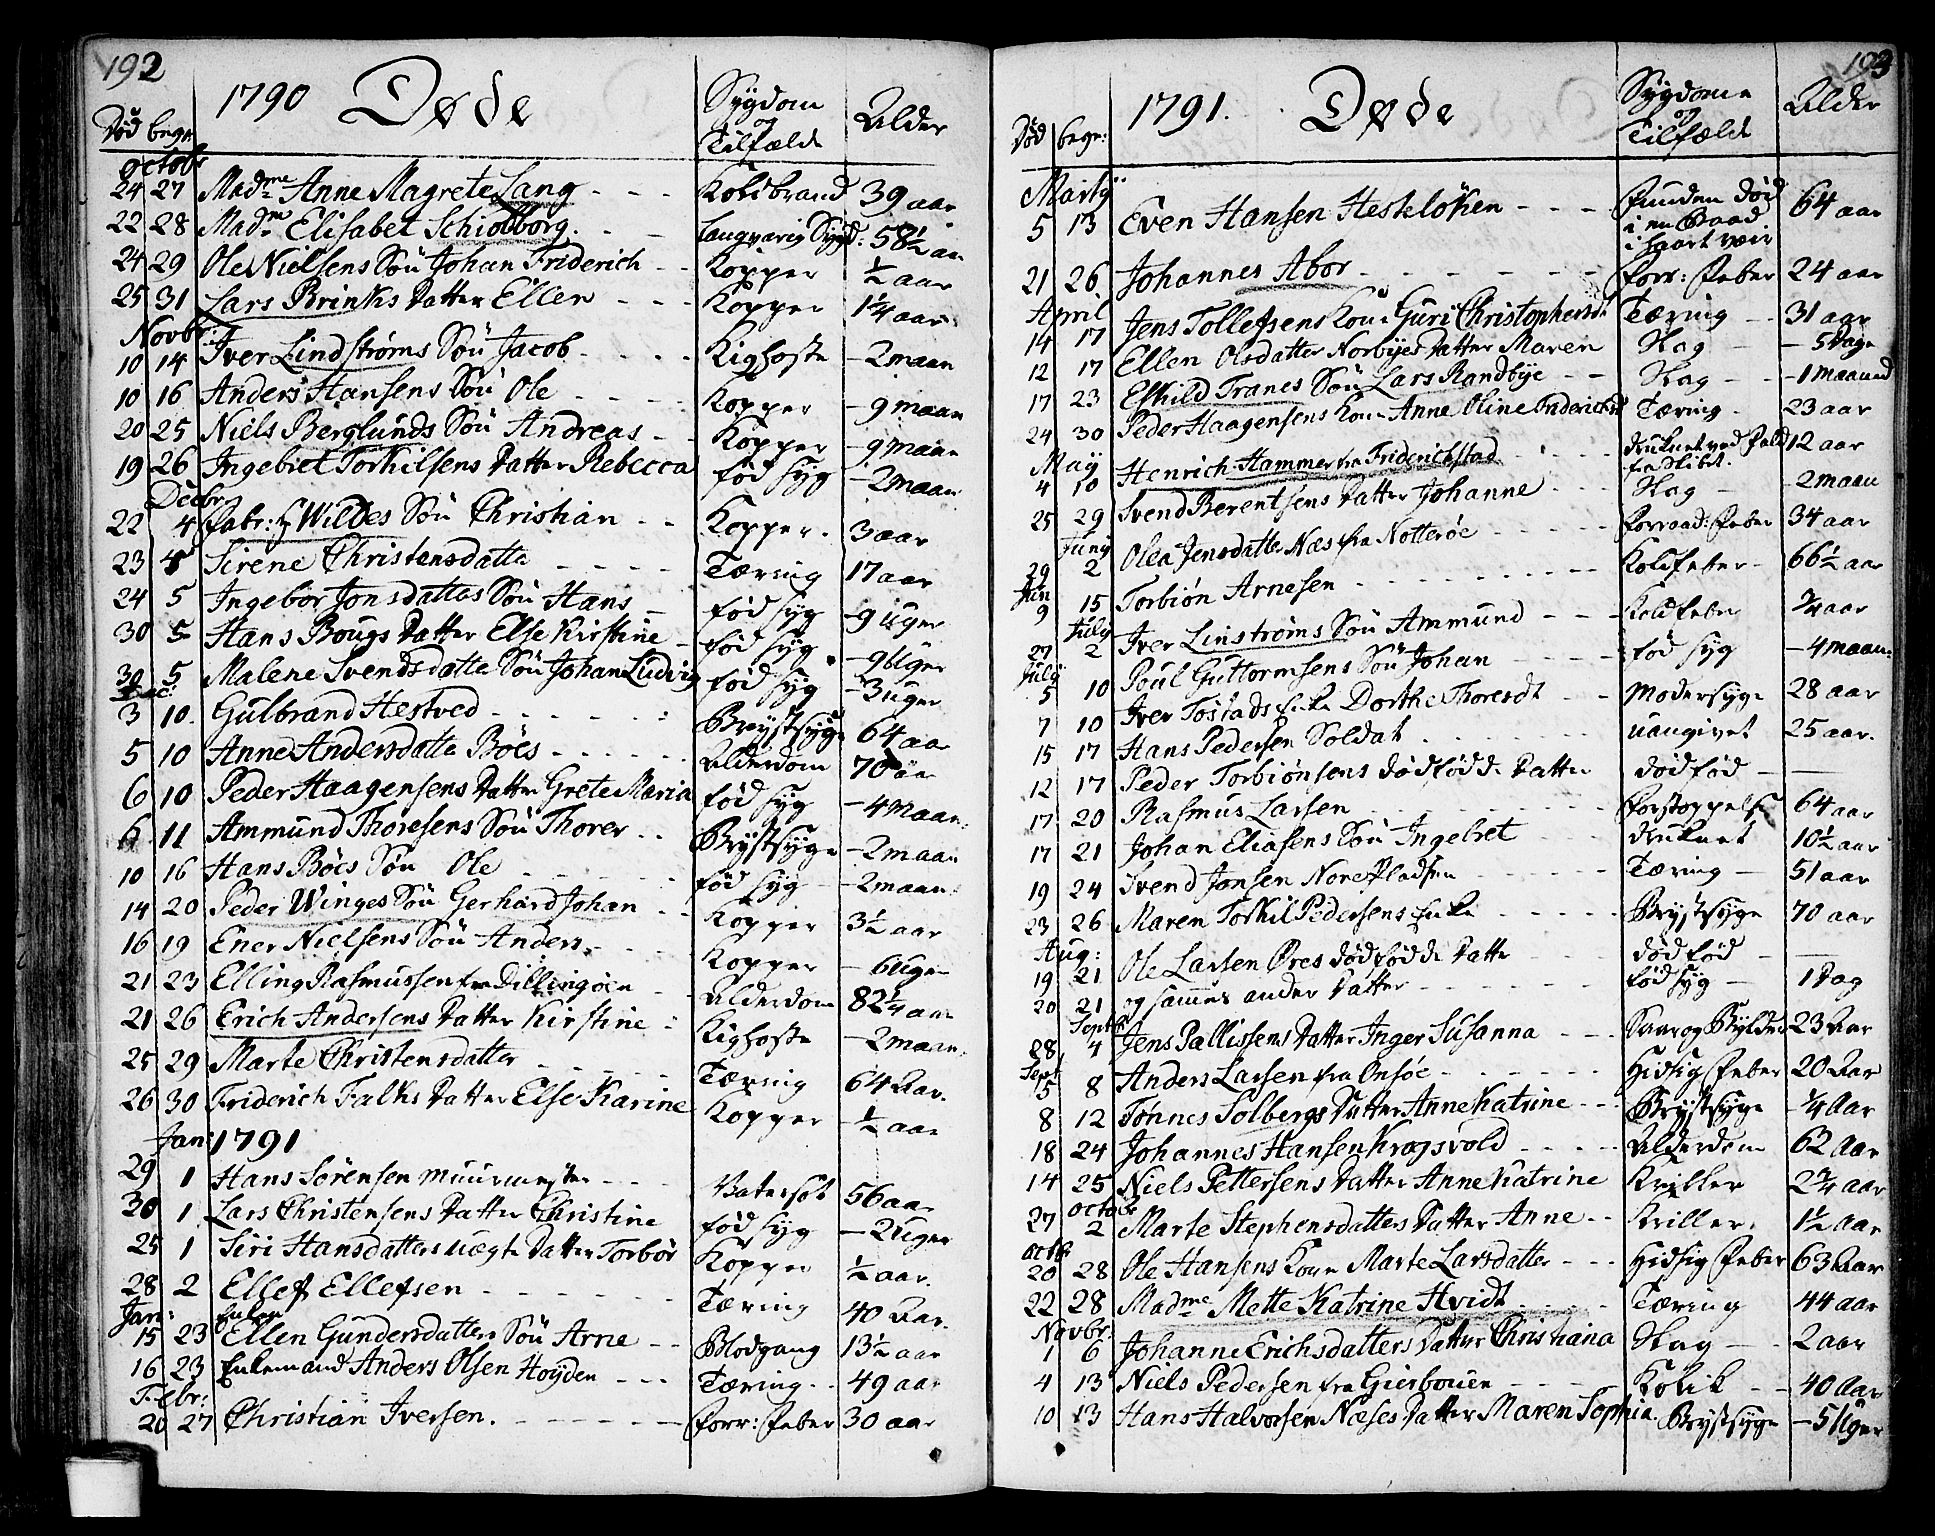 192
1790 Døde
Sygdom og Tilfælde
Alder
Død begr:
Octobr
24 27 Madme Anne Magrete Lang - - - Koldbrand 39 aar
22 28 Madme Elisabet Schiolborg. - - Langvarig Sygd: 58½ aar
24 29 Ole Nielsens Søn Johan Friderich - - Kopper ½ aar
25 31 Lars Brinks Datter Ellen - - - Kopper 1¼ aar
Novbr:
10 14 Iver Lindstrøms Søn Jacob - - - - Kighoste - 2 maan
10 16 Anders Hansens Søn Ole - - - - Kopper - 9 maan
20 25 Niels Berglunds Søn Andreas - - Kopper - 9 maan
19 26 Ingebret Torkilsens Datter Rebecca fød syg - 2 maan
Decbr
22 4 Fabr: Wildes Søn Christian - - Kopper - 3 aar
23 4 Sirene Christensdatter - - - - Tæring 17 aar
24 5 Ingebor Jonsdatters Søn Hans - fød syg - 9 uger
30 5 Hans Bougs Datter Else Kirstine - fød syg - 9 Uger
30 5 Malene Svendsdatter Søn Johan Ludvig fød syg - 3 uger
Dec:
3 10. Gulbrand Hestved - - - - - Brystsyge 64 aar
5 10 Anne Andersdatter Böes - - - - - Alderdom 70 aar
6 10 Peder Haagensens Datter Grete Maria fød syg - 4 maan:
6 11 Ammund Thoresens Søn Thorer - - Brystsyge - 2 maan
10 16 Hans Böes Søn Ole - - - - - fød syg - 2 maan:
14 20 Peder Winges Søn Gerhard Johan - - Kopper 3½ aar
16 19 Ener Nielsens Søn Anders - - - Kopper - 6 Uger
21 23 Elling Rasmussen fra Dillingöen - Alderdom 82¼ aar
21 26 Erich Andersens Datter Kirstine - Kighoste - 2 maan:
25 29 Marte Christensdatter - - - - - Tæring 64 Aar.
26 30 Friderich Falks Datter Else Karine Kopper - ½ aar
Jan: 1791
29 1 Hans Sörensen Muurmester - - - Vatersot 56 aar
30 1 Lars Christensens Datter Christine fød syg - 2 Uger
25 1 Siri Hansdatters uægte Datter Torbör Kopper ½ aar.
28 2 Ellef Ellefsen - - - - - - Tæring 40 Aar.
Jan: Enken
15 23 Ellen Gundersdatters Søn Arne - - Blodgang 13½ aar
16 23 Enkemand Anders Olsen Hoyden - - - Tæring - - 49 aar
Febr:
20 27 Christian Iversen. - - - - - - forr: Feber 30 aar
193
1791. Døde
Sygdom og Tilfælde
Alder
Død begr:
Martij
5 13 Even Hansen Heskelöken - - - funden død i en Baad i haart veir 64 aar
21 26 Johannes Abor - - - - - - forr: Feber 24 aar
April
14 17 Jens Tollefsens Kone Guri Christophersdt Tæring - - 31 aar
12 17 Ellen Olsdatter Norbyes Datter Maren Slag - - 5 Dage
17 23 Eskild Tranes Søn Lars Randbye - - Slag - - - 1 maaned
24 30 Peder Haagensens Kone Anne Oline Friderichsdt Tæring - 23 aar
May
4 10 Henrich Hammer fra Friderichstad - - - druknet ved fald fra Skibet. 12 aar
25 29 Svend Berentsens Datter Johanne - - - Slag - - 2 maan
Junij
29 2 Olea Jensdatter Næs fra Notteröe - - - - forraad: Feber 34 aar
Jun
9 15 Torbiön Arnesen - - - - - - - - - Koldfeber - 66½ aar
July
27 2 Iver Linstrøms Søn Ammund - - - Koldfeber ¾ aar
July
5 10 Poul Guttormsens Søn Johan - - - - fød syg - 4 maan:
7 10 Iver Tostads Enke Dorthe Thoresdt - - Modersyge 28 aar
15 17 Hans Pedersen Soldat - - - - - - uangivet 25 aar.
12 17 Peder Torbiönsens dødfødde Datter dødfød - -
17 20 Rasmus Larsen - - - - - - - forstoppelse 64 aar
17 21 Johan Eliasens Søn Ingebret - - - druknet 10½ aar
19 24 Svend Jonsen Nore Pladsen - - - - Tæring - 51 aar
23 26 Maren Torkil Pedersens Enke - - - - - Brystsyge 70 aar
Aug:
19 21 Ole Larsen Öres dødfødde Datter - - - dødfød -
20 21 og sammes anden Datter - - - - - - fød syg - 1 Dag
Septbr
28 4 Jens Pallissens Datter Inger Susanna - - - Saar og Bylder 23 Aar
Sept
15 8 Anders Larsen fra Onsöe - - - - - - Hidsig Feber 20 Aar
8 12 Tönnes Solbergs Datter Anne Katrine - - - Brystsyge - ¼ Aar
18 24 Johannes Hansen Kragsvold - - - - - Alderdom 62 Aar
14 25 Niels Pettersens Datter Anne Katrine Kriller 2¾ aar
Octobr
27 2 Marte Stephensdatters Datter Anne - - Kriller. 1½ Aar
Octbr
20 28 Ole Hansens Kone Marte Larsdatter - - - Hidsig Feber 63 Aar
22 28 Madme Mette Katrine Hvidt - - - - Tæring 44 aar
Novbr:
1 6 Johanne Erichsdatters Datter Christiana Slag - - 2 aar
4 13 Niels Pedersen fra Gierbouen - - - - Kolik - - 40 Aar
10 13 Hans Halvorsen Næses Datter Maren Sophia. Brystsyge - 5 Uger